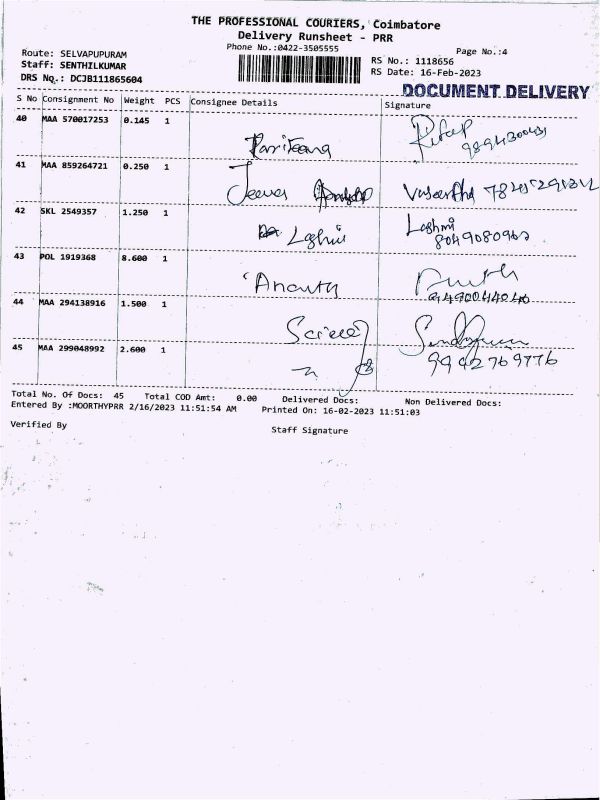 THE PROFESSIONAL COURIERS, Coimbatore
Delivery Runsheet - PRR
Phone No.:0422-3505555
Page No.:4
Route: SELVAPUPURAM
Staff: SENTHILKUMAR
DRS No.: DCJB111865604
RS No.: 1118656
RS Date: 16-Feb-2023
DOCUMENT DELIVERY
S No Consignment No Weight PCS Consignee Details Signature
40 MAA 570017253 0.145 1
41 MAA 859264721 0.250 1
Jeeva
42 SKL 2549357 1.250 1
Laghmi
8049080962
43 POL 1919368 8.600 1
44 MAA 294138916 1.500 1
45 MAA 299048992 2.600 1
9942769776
Total No. Of Docs: 45 Total COD Amt: 0.00 Delivered Docs: Non Delivered Docs:
Entered By :MOORTHYPRR 2/16/2023 11:51:54 AM Printed On: 16-02-2023 11:51:03
Verified By
Staff Signature